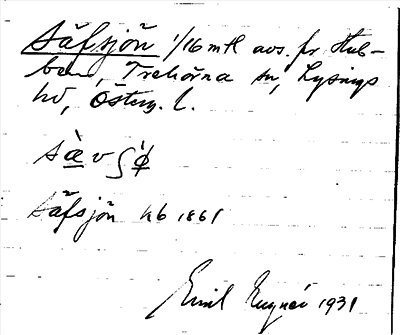 Säfsjön 1/16 mtl avs. fr Hub-
ben, Trehörna sn, Lysings
hd, Österg. l.
sä̀vʃö́
Säfsjön hb 1861
Emil 1931